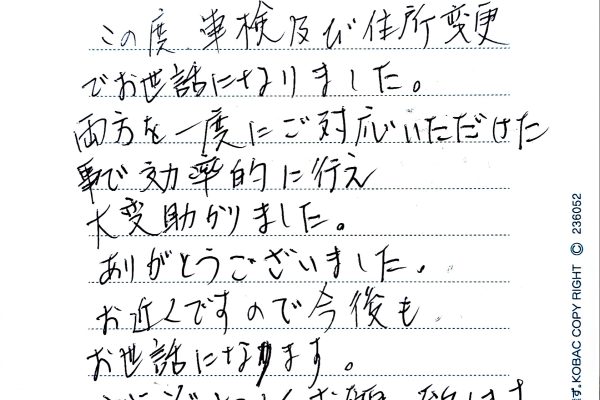 この度、車検及び住所変更
でお世話になりました。
両方を一度にご対応いただけた
事で効率的に行え
大変助かりました。
ありがとうございました。
お近くですので今後も
お世話になります。
す。KOBAC COPY RIGHT © 236052